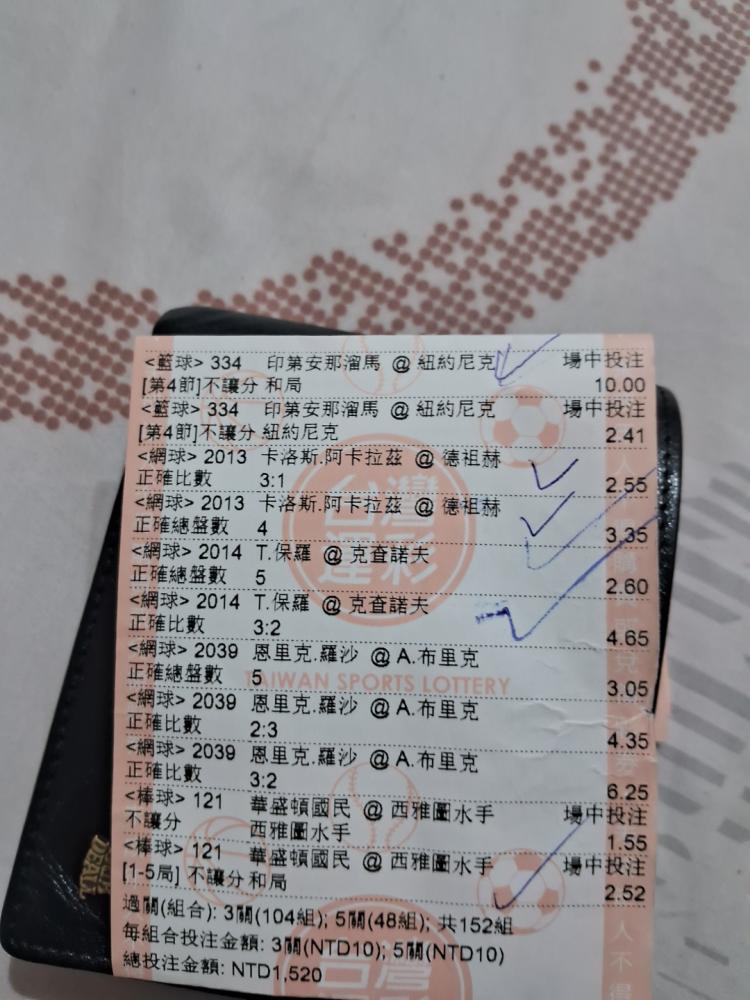 <籃球> 334 印第安那溜馬 @ 紐約尼克 場中投注
[第4節]不讓分 和局 10.00
<籃球> 334 印第安那溜馬 @ 紐約尼克 場中投注
[第4節]不讓分 紐約尼克 2.41
<網球> 2013 卡洛斯.阿卡拉茲 @ 德祖赫
正確比數 3:1 2.55
<網球> 2013 卡洛斯.阿卡拉茲 @ 德祖赫
正確總盤數 4 3.35
<網球> 2014 T.保羅 @ 克查諾夫
正確總盤數 5 2.60
<網球> 2014 T.保羅 @ 克查諾夫
正確比數 3:2 4.65
<網球> 2039 恩里克.羅沙 @ A.布里克
正確總盤數 5 3.05
TAIWAN SPORTS LOTTERY
<網球> 2039 恩里克.羅沙 @ A.布里克
正確比數 2:3 4.35
<網球> 2039 恩里克.羅沙 @ A.布里克
正確比數 3:2 6.25
<棒球> 121 華盛頓國民 @ 西雅圖水手 場中投注
不讓分 西雅圖水手 1.55
<棒球> 121 華盛頓國民 @ 西雅圖水手 場中投注
[1-5局] 不讓分 和局 2.52
過關(組合): 3關(104組); 5關(48組); 共152組
每組合投注金額: 3關(NTD10); 5關(NTD10)
總投注金額: NTD1,520
台灣
運彩
台灣
人不得
DEAL